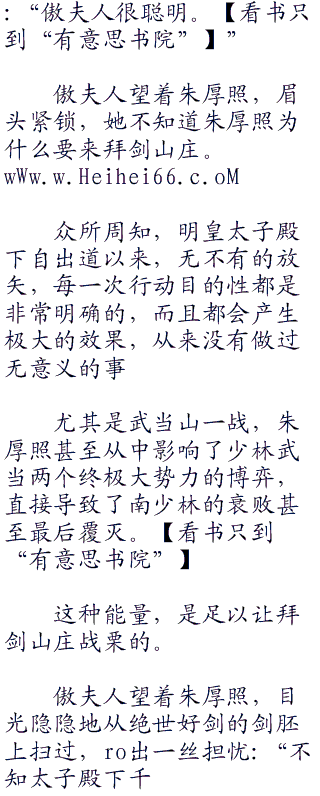 ：“傲夫人很聪明。【看书只
到“有意思书院”】”
傲夫人望着朱厚照，眉
头紧锁，她不知道朱厚照为
什么要来拜剑山庄。
wWw.w.Heihei66.c.oM
众所周知，明皇太子殿
下自出道以来，无不有的放
矢，每一次行动目的性都是
非常明确的，而且都会产生
极大的效果，从来没有做过
无意义的事
尤其是武当山一战，朱
厚照甚至从中影响了少林武
当两个终极大势力的博弈，
直接导致了南少林的衰败甚
至最后覆灭。【看书只到
“有意思书院”】
这种能量，是足以让拜
剑山庄战栗的。
傲夫人望着朱厚照，目
光隐隐地从绝世好剑的剑胚
上扫过，ro出一丝担忧：“不
知太子殿下千